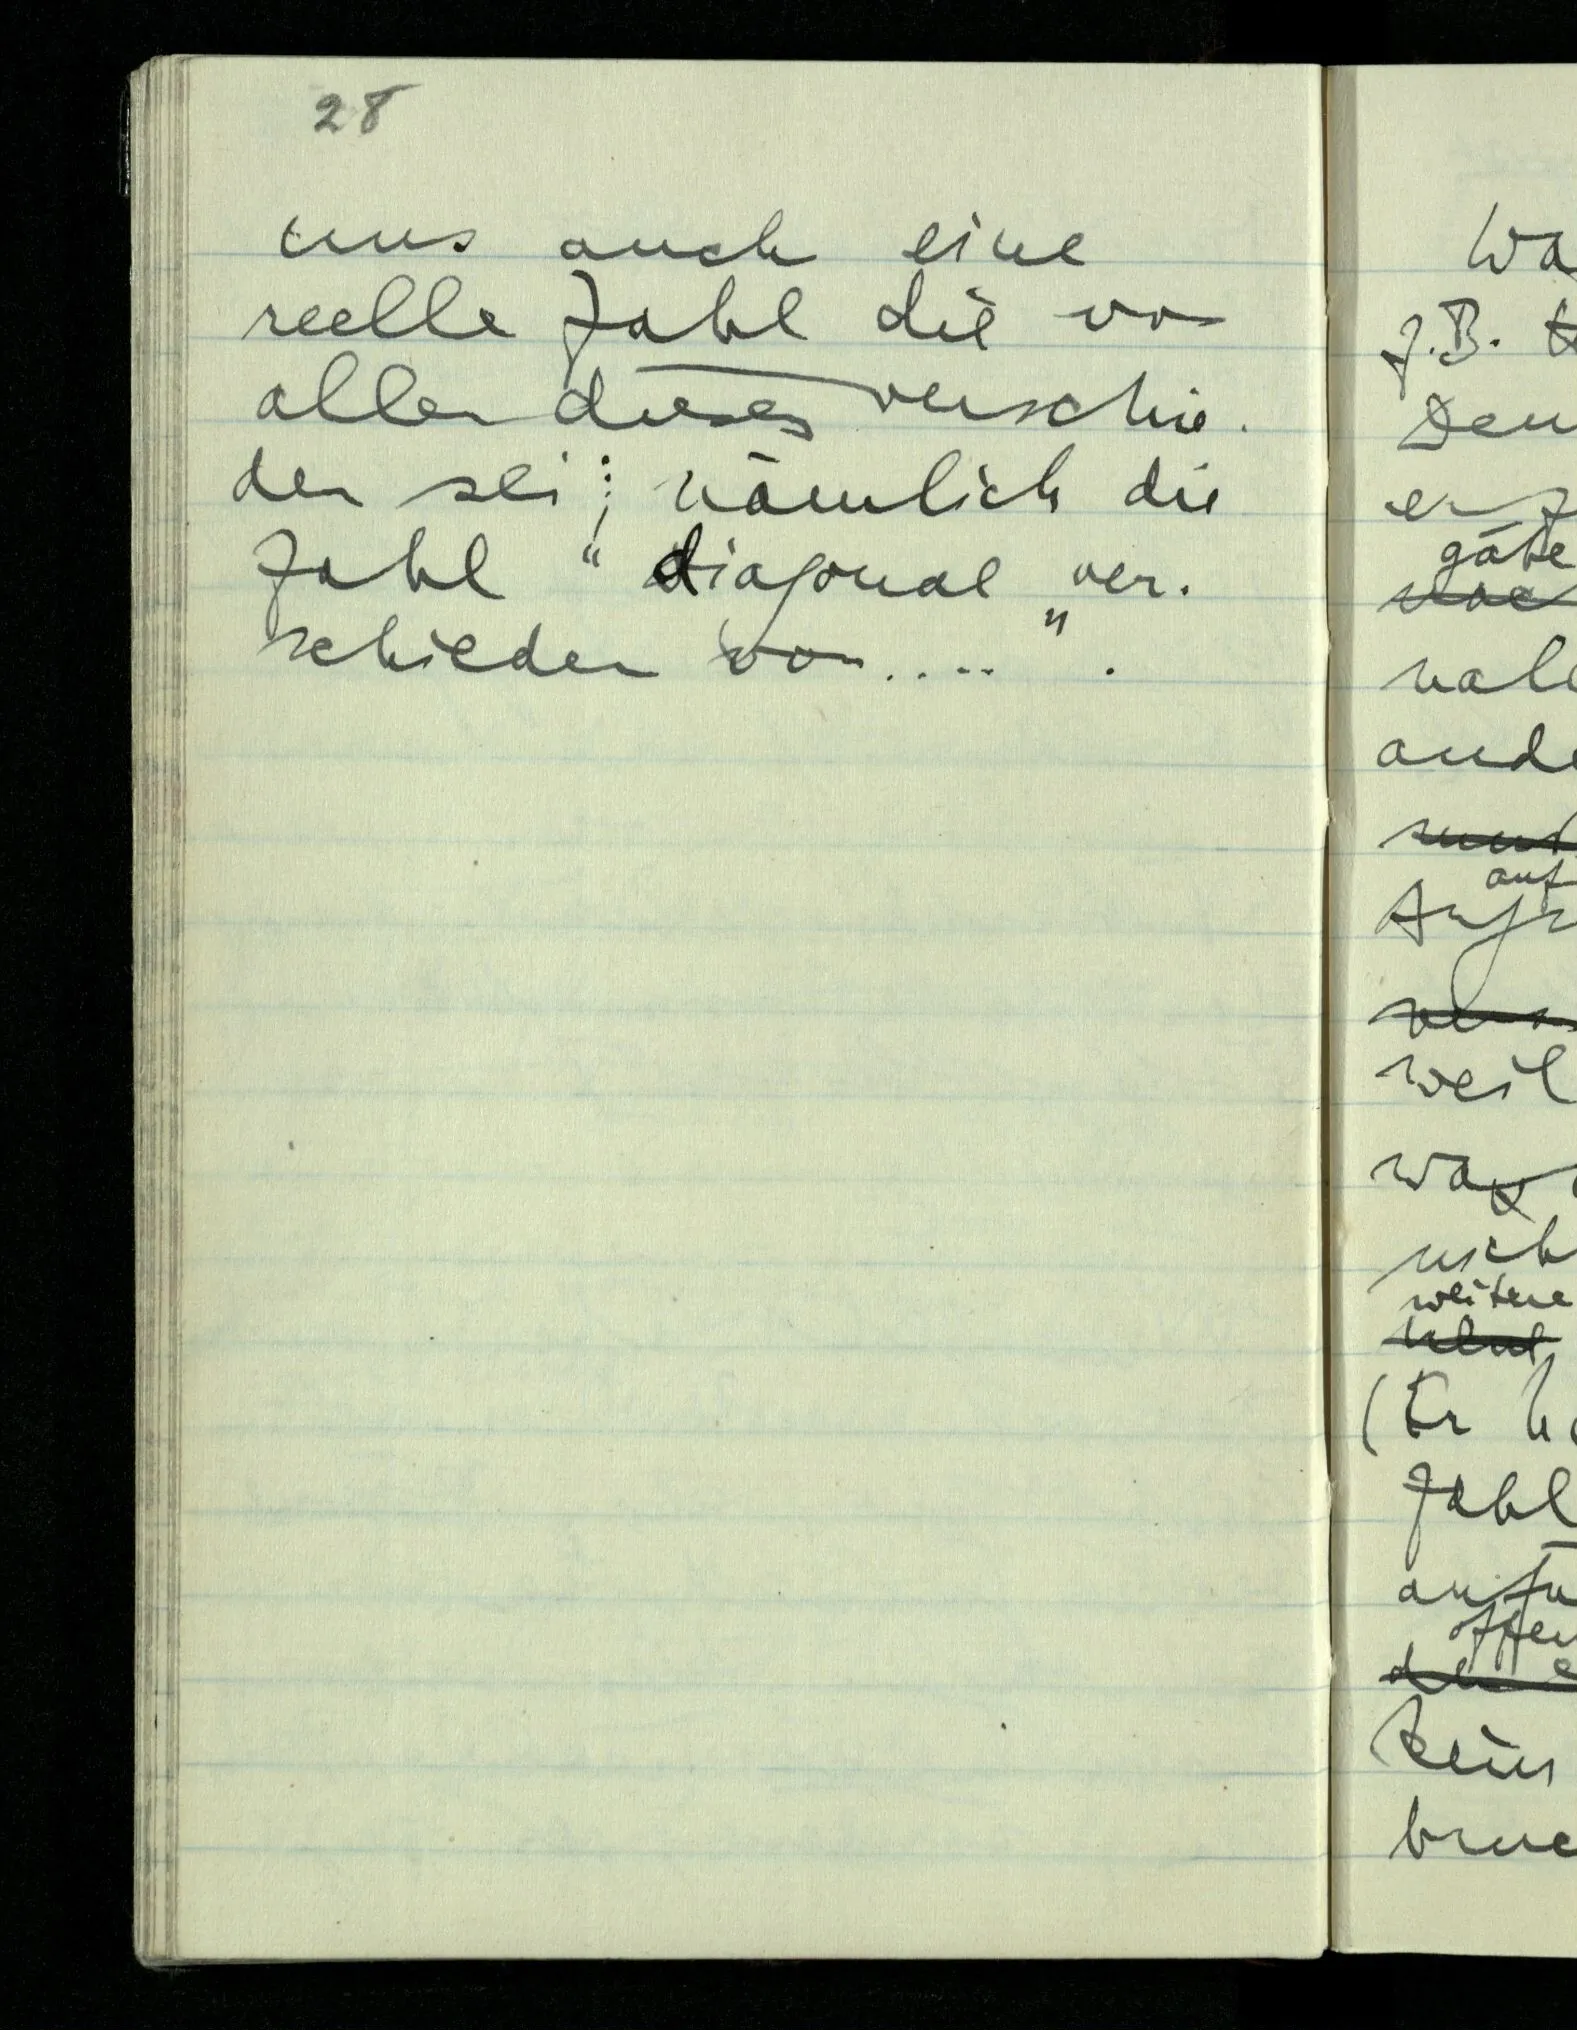 28
uns auch eine
reelle Zahl die von
allen diesen verschie-
den sei; nämlich die
Zahl "diagonal ver-
schieden von....".
Wa
z.B.
Den
gäbe
and
auf
weil
was
nich
weitere
(Er ha
Zahl
offen
kein